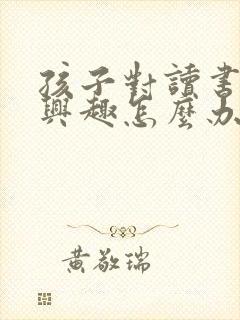 孩子對讀書
興趣怎麼办
黃敬瑞